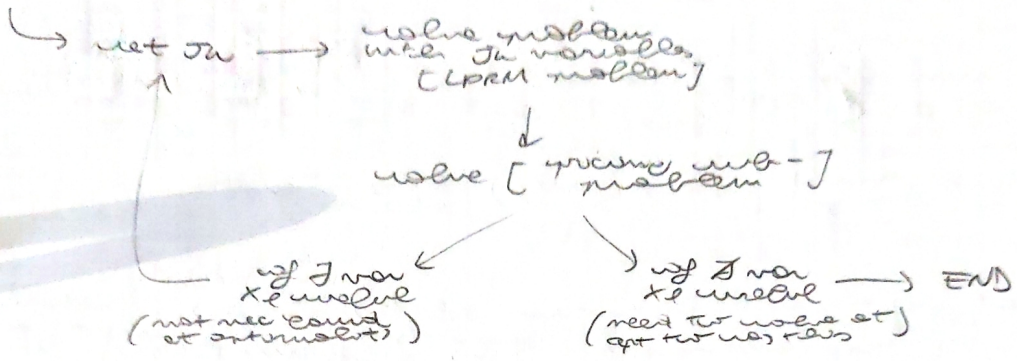 set Jn → solve problem
with Jn variables
[LPRM problem]
solve [ pricing sub-
problem ]
if ∃ var
xe unsolve
(not nec found
at optimality)
if ∄ var
xe unsolve
(need to solve at
opt to
→ END